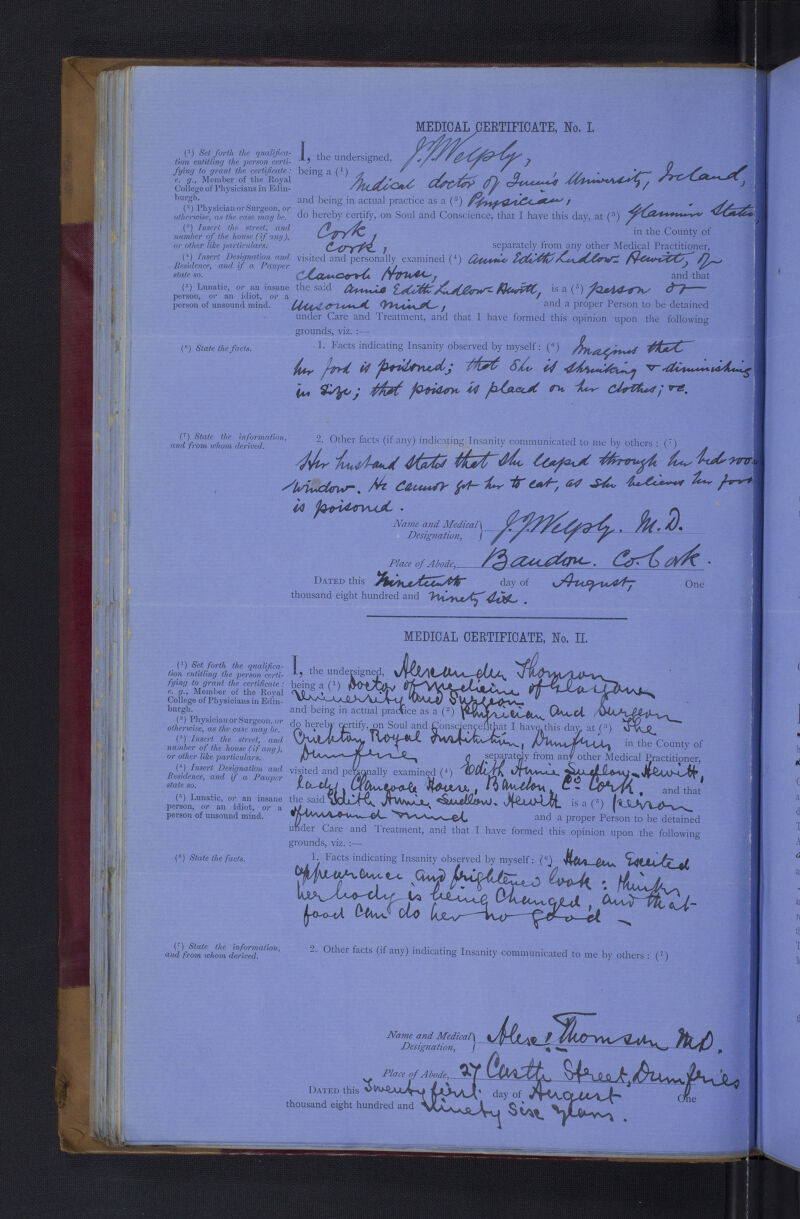 MEDICAL CERTIFICATE, No. I.
(1) Set forth the qualifica-
tion entitling the person certi-
fying to grant the certificate:
e. g., Member of the Royal
College of Physicians in Edin-
burgh.
(2) Physician or Surgeon, or
otherwise, as the case may be.
(3) Insert the street, and
number of the house (if any),
or other like particulars.
(4) Insert Designation and
Residence, and if a Pauper
state so.
(5) Lunatic, or an insane
person, or an idiot, or a
person of unsound mind.
I, the undersigned, J. J. Welply,
being a (1) Medical doctor of Queen's University, Ireland,
and being in actual practice as a (2) Physician,
do hereby certify, on Soul and Conscience, that I have this day, at (3) States
Cork, in the County of
Cork, separately from any other Medical Practitioner,
visited and personally examined (4) Annie Edith Ludlow-Hewitt, of
Clancoole House, and that
the said Annie Edith Ludlow-Hewitt, is a (5) person of
unsound mind, and a proper Person to be detained
under Care and Treatment, and that I have formed this opinion upon the following
grounds, viz. :—
(6) State the facts.
1. Facts indicating Insanity observed by myself: (6) Imagines that
her food is poisoned; that She is shrinking & diminishing
in Size; that poison is placed on her clothes; &c.
(7) State the information,
and from whom derived.
2. Other facts (if any) indicating Insanity communicated to me by others : (7)
Her husband states that She leaped through her bedroom
window. He cannot get her to eat, as she believes her food
is poisoned.
Name and Medical Designation, J. J. Welply. M.D.
Place of Abode, Bandon. Co. Cork.
DATED this Nineteenth day of August, One
thousand eight hundred and ninety six.
MEDICAL CERTIFICATE, No. II.
(1) Set forth the qualifica-
tion entitling the person certi-
fying to grant the certificate:
e. g., Member of the Royal
College of Physicians in Edin-
burgh.
(2) Physician or Surgeon, or
otherwise, as the case may be.
(3) Insert the street, and
number of the house (if any),
or other like particulars.
(4) Insert Designation and
Residence, and if a Pauper
state so.
(5) Lunatic, or an insane
person, or an idiot, or a
person of unsound mind.
I, the undersigned, Alexander Thomson
being a (1) Doctor of Medicine of Glasgow
University and Surgeon
and being in actual practice as a (2) Physician and Surgeon
do hereby certify, on Soul and Conscience, that I have this day, at (3) The
Crichton Royal Institution, Dumfries in the County of
Dumfries separately from any other Medical Practitioner,
visited and personally examined (4) Edith Annie Ludlow-Hewitt,
lady, Clancoole House, Bandon, Co Cork. and that
the said Edith Annie Ludlow-Hewitt is a (5) person
of unsound mind and a proper Person to be detained
under Care and Treatment, and that I have formed this opinion upon the following
grounds, viz. :—
(6) State the facts.
1. Facts indicating Insanity observed by myself: (6) Has an Excited
appearance and frightened look: thinks
her body is being Changed, and that
food can do her no good —
(7) State the information,
and from whom derived.
2. Other facts (if any) indicating Insanity communicated to me by others : (7)
Name and Medical Designation, Alexr. Thomson MD.
Place of Abode, 27 Castle Street, Dumfries
DATED this Twenty first day of August One
thousand eight hundred and Ninety Six years.